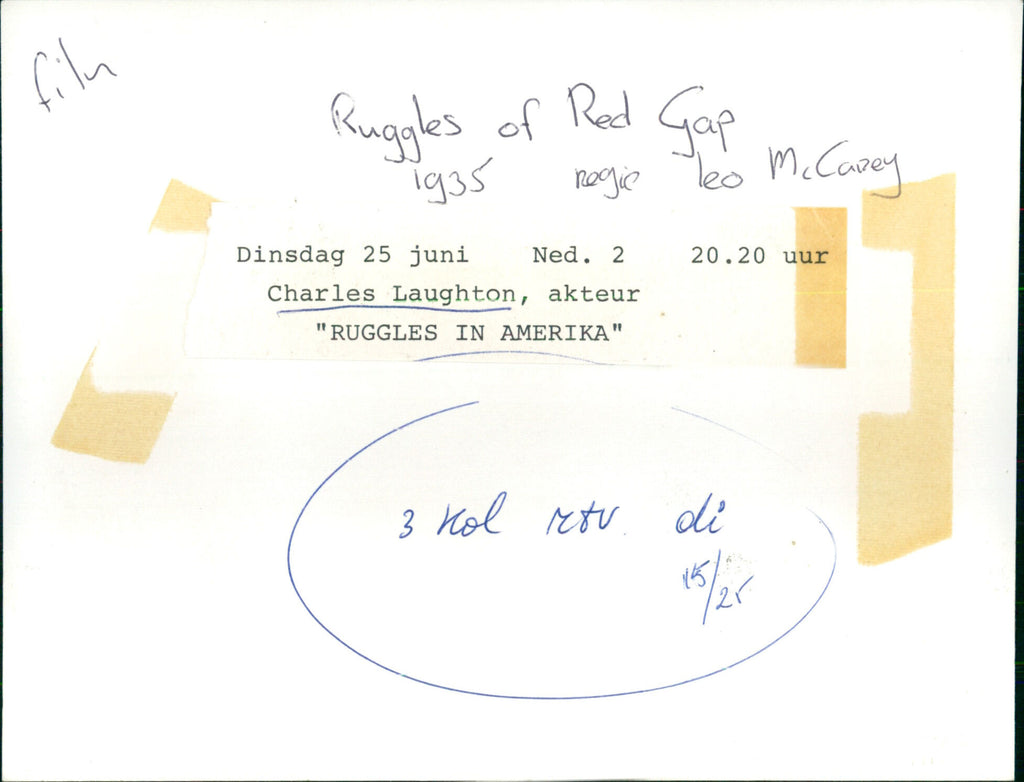 film
Ruggles of Red Gap
1935 regie leo McCarey
Dinsdag 25 juni Ned. 2 20.20 uur
Charles Laughton, akteur
"RUGGLES IN AMERIKA"
3 kol rtv di
15/25